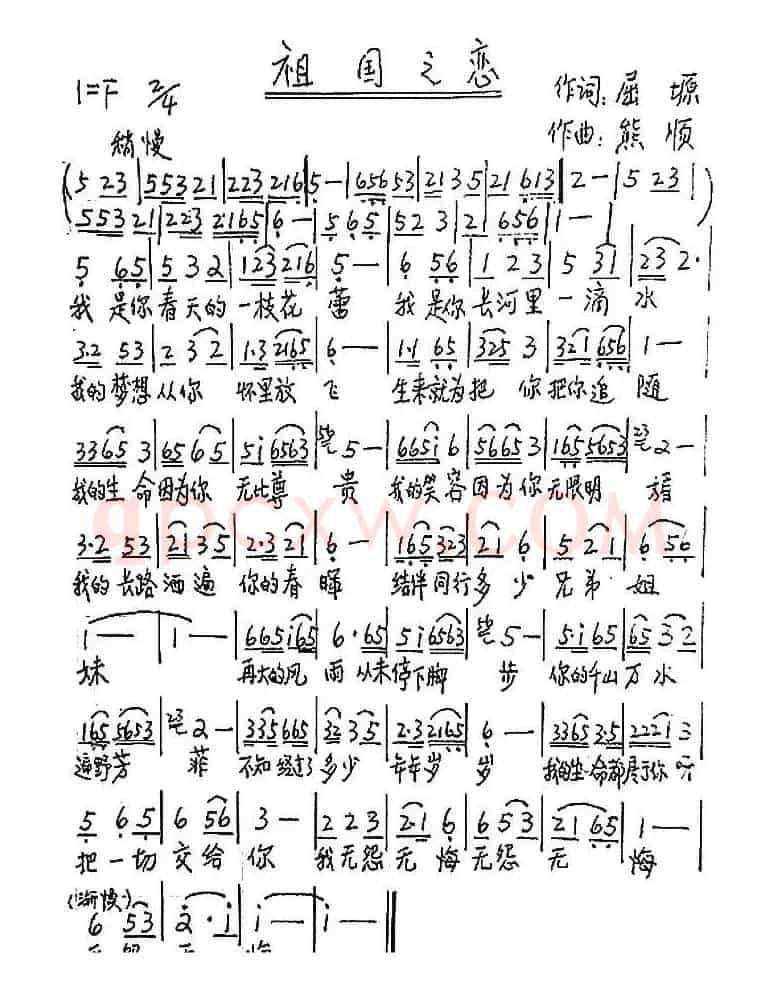 祖国之恋
1=F 2/4
作词：屈塬
作曲：熊顺
稍慢
(5 23|55321|223 216|5—|65653|2135|21 613|2—|5 23|
55321|223 2165|6—|5 65|52 3|21 656|1—|)
5 65|5 3 2|123 216|5—|6 56|1 2 3|5 31|23 2·|
我 是你春天的 一枝花 蕾 我 是你长河里一滴 水
3·2 53|2 3 2|1·3 2165|6—|1·1 65|325 3|321 656|1—|
我的梦想从你 怀里放 飞 生来就为把 你把你追 随
3365 3|65 65|5i 6563|5—|665i 6|56653|165 5653|2—|
我的生命因为你 无比尊 贵 我的笑容因为你无限明
3·2 53|21 35|2·3 21|6—|165 323|21 6|5 21|6 56|
我的长路洒遍 你的春晖 结伴同行多少 兄弟 姐
1—|1—|665i65|6·65|5i 6563|5—|5·i 65|65 32|
妹 再大的风 雨从未停下脚 步 你的千山万水
165 5653|2—|335665|32 35|2·3 2165|6—|3365 3·5|2221 3|
遍野芳 菲 不知经过了多少 年年岁 岁 我的生命都尽于你呀
5 65|6 56|3—|2 2 3|2·1 6|6 53|21 65|1—|
把一切交给 你 我无怨无 悔无怨 无 悔
(渐慢)
6 53|2·i|i—|i—‖